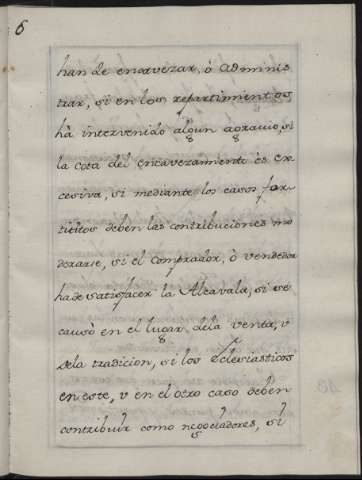 6
han de encavezar, ò Adminis
trar, si en los repartimientos
hà intervenido algun agravio, si
la cota del encavezamiento ès ex
cesiva, si mediante los casos for
tititos deben las contribuciones mo
derarse, si el Comprador, ò vendedor
ha de satisfacer la Alcavala, si se
causò en el lugar dela venta, v
dela tradicion, si los Eclesiasticos
en este, v en el otro caso deben
contribuir como negociadores, si